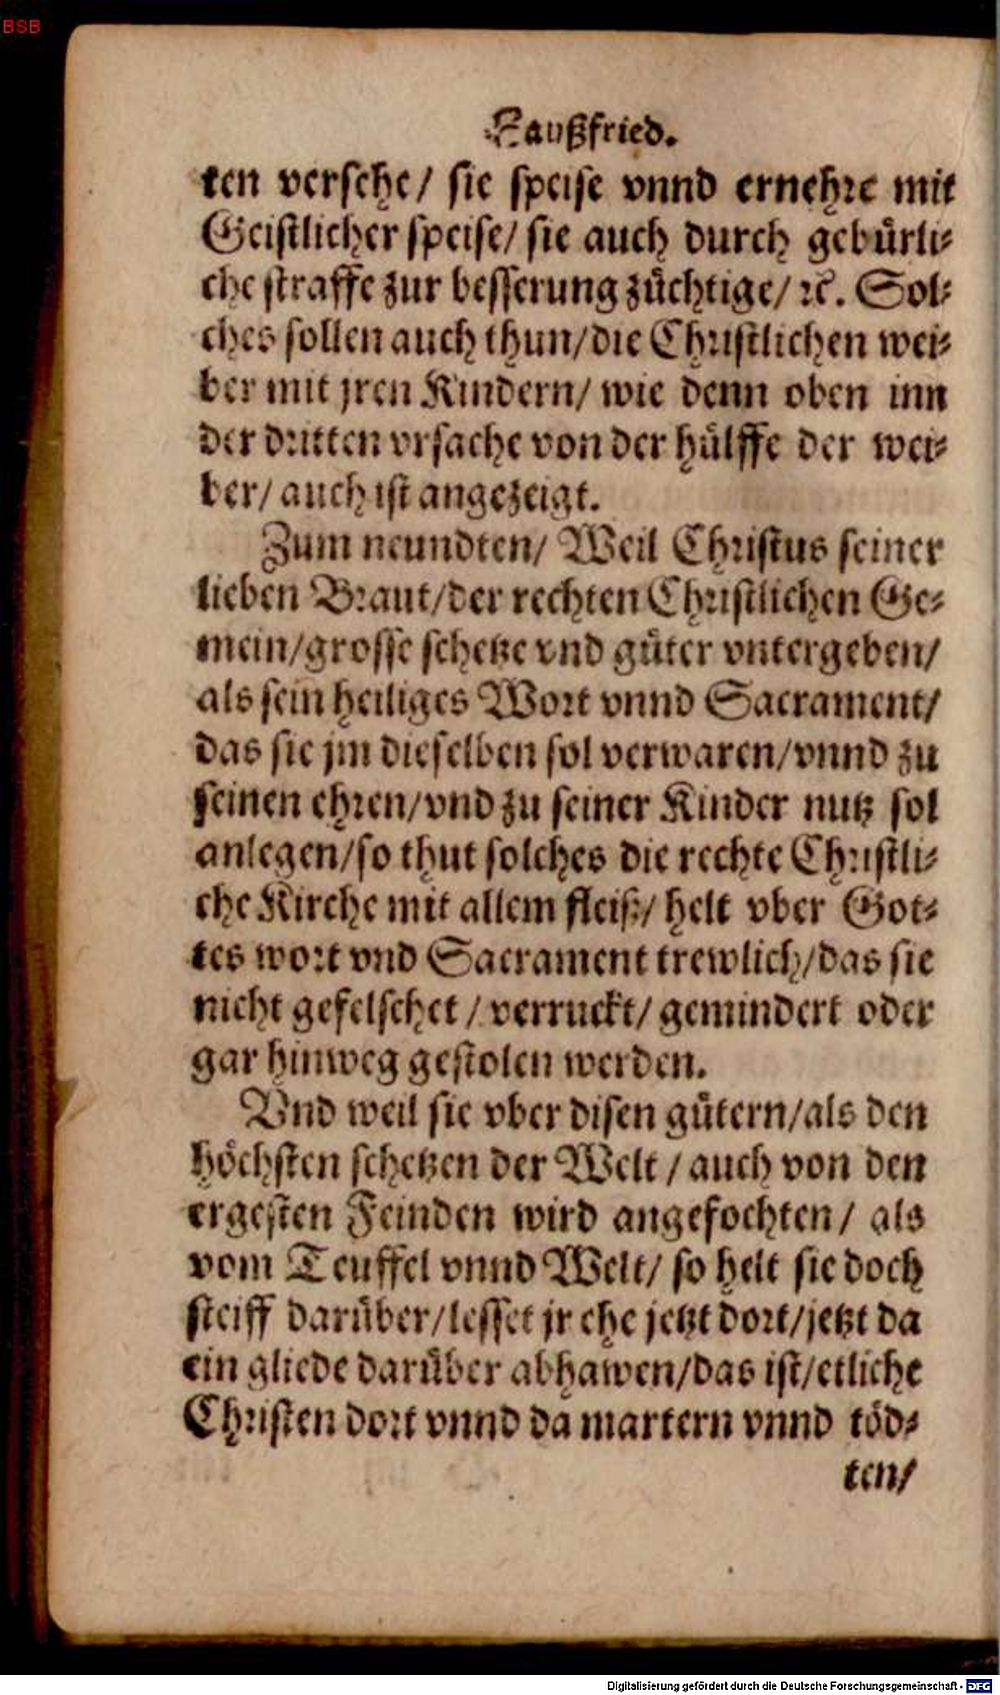 BSB
Haußfried.
ten versehe/ sie speise vnnd ernehre mit
Geistlicher speise/ sie auch durch gebürli⸗
che straffe zur besserung züchtige/ ꝛc. Sol⸗
ches sollen auch thun/die Christlichen wei⸗
ber mit jren Kindern/ wie denn oben inn
der dritten vrsache von der hülffe der wei⸗
ber/ auch ist angezeigt.
Zum neundten/ Weil Christus seiner
lieben Braut/der rechten Christlichen Ge⸗
mein/grosse schetze vnd güter vntergeben/
als sein heiliges Wort vnnd Sacrament/
das sie jm dieselben sol verwaren/vnnd zu
seinen ehren/vnd zu seiner Kinder nutz sol
anlegen/so thut solches die rechte Christli⸗
che Kirche mit allem fleiß/ helt vber Got⸗
tes wort vnd Sacrament trewlich/das sie
nicht gefelschet / verruckt/ gemindert oder
gar hinweg gestolen werden.
Vnd weil sie vber disen gütern/als den
höchsten schetzen der Welt / auch von den
ergesten Feinden wird angefochten/ als
vom Teuffel vnnd Welt/ so helt sie doch
steiff darüber/lesset jr ehe jetzt dort/jetzt da
ein gliede darüber abhawen/das ist/etliche
Christen dort vnnd da martern vnnd töd⸗
ten/
Digitalisierung gefördert durch die Deutsche Forschungsgemeinschaft - DFG